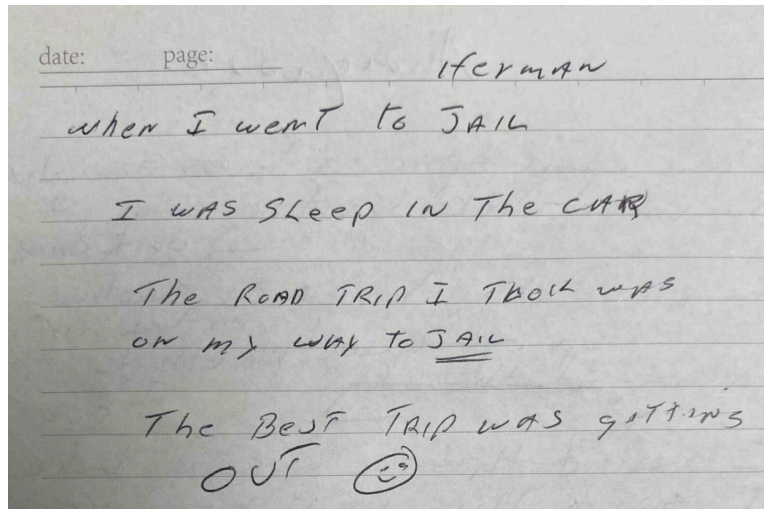 date: page:
Herman
when I went to JAIL
I WAS SLeep IN The CAR
The ROAD TRIP I TOOK WAS
ON my WAY TO JAIL
The BesT TRIP WAS geTTing
OUT